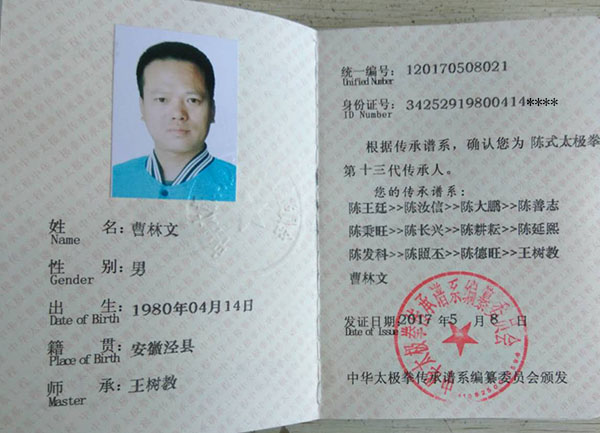 姓 名：曹林文
Name
性 别：男
Gender
出 生：1980年04月14日
Date of Birth
籍 贯：安徽泾县
Place of Birth
师 承：王树教
Master
统一编号：120170508021
Unified Number
身份证号：34252919800414****
ID Number
根据传承谱系，确认您为 陈式太极拳
第十三代传承人。
您的传承谱系：
陈王廷>>陈汝信>>陈大鹏>>陈善志
陈秉旺>>陈长兴>>陈耕耘>>陈延熙
陈发科>>陈照丕>>陈德旺>>王树教
曹林文
发证日期：2017 年5 月 8 日
Date of Issue
中华太极拳传承谱系编纂委员会
中华太极拳传承谱系编纂委员会颁发